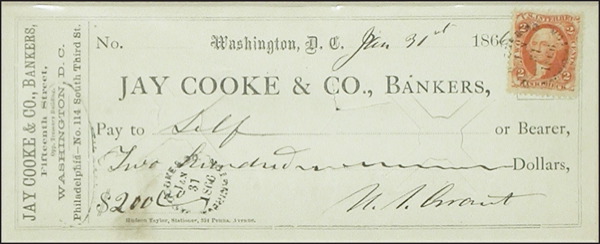 JAY COOKE & CO., BANKERS,
Fifteenth Street,
Opp. Treasury Building,
WASHINGTON, D.C.
Philadelphia—No. 114 South Third St.
No. Washington, D. C. Jan 31st 186
JAY COOKE & CO., BANKERS,
Pay to Self or Bearer,
Two Hundred Dollars,
$200 U. S. Grant
JAN
31
1866
Hudson Taylor, Stationer, 334 Penna. Avenue.
U.S. INTER. REV.
2 2
BANK CHECK